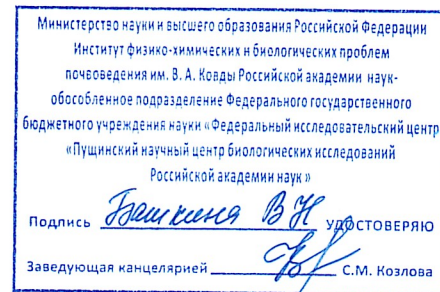 Министерство науки и высшего образования Российской Федерации
Институт физико-химических и биологических проблем
почвоведения им. В. А. Ковды Российской академии наук-
обособленное подразделение Федерального государственного
бюджетного учреждения науки «Федеральный исследовательский центр
«Пущинский научный центр биологических исследований
Российской академии наук »
Подпись Башкина В Н УДОСТОВЕРЯЮ
Заведующая канцелярией С.М. Козлова